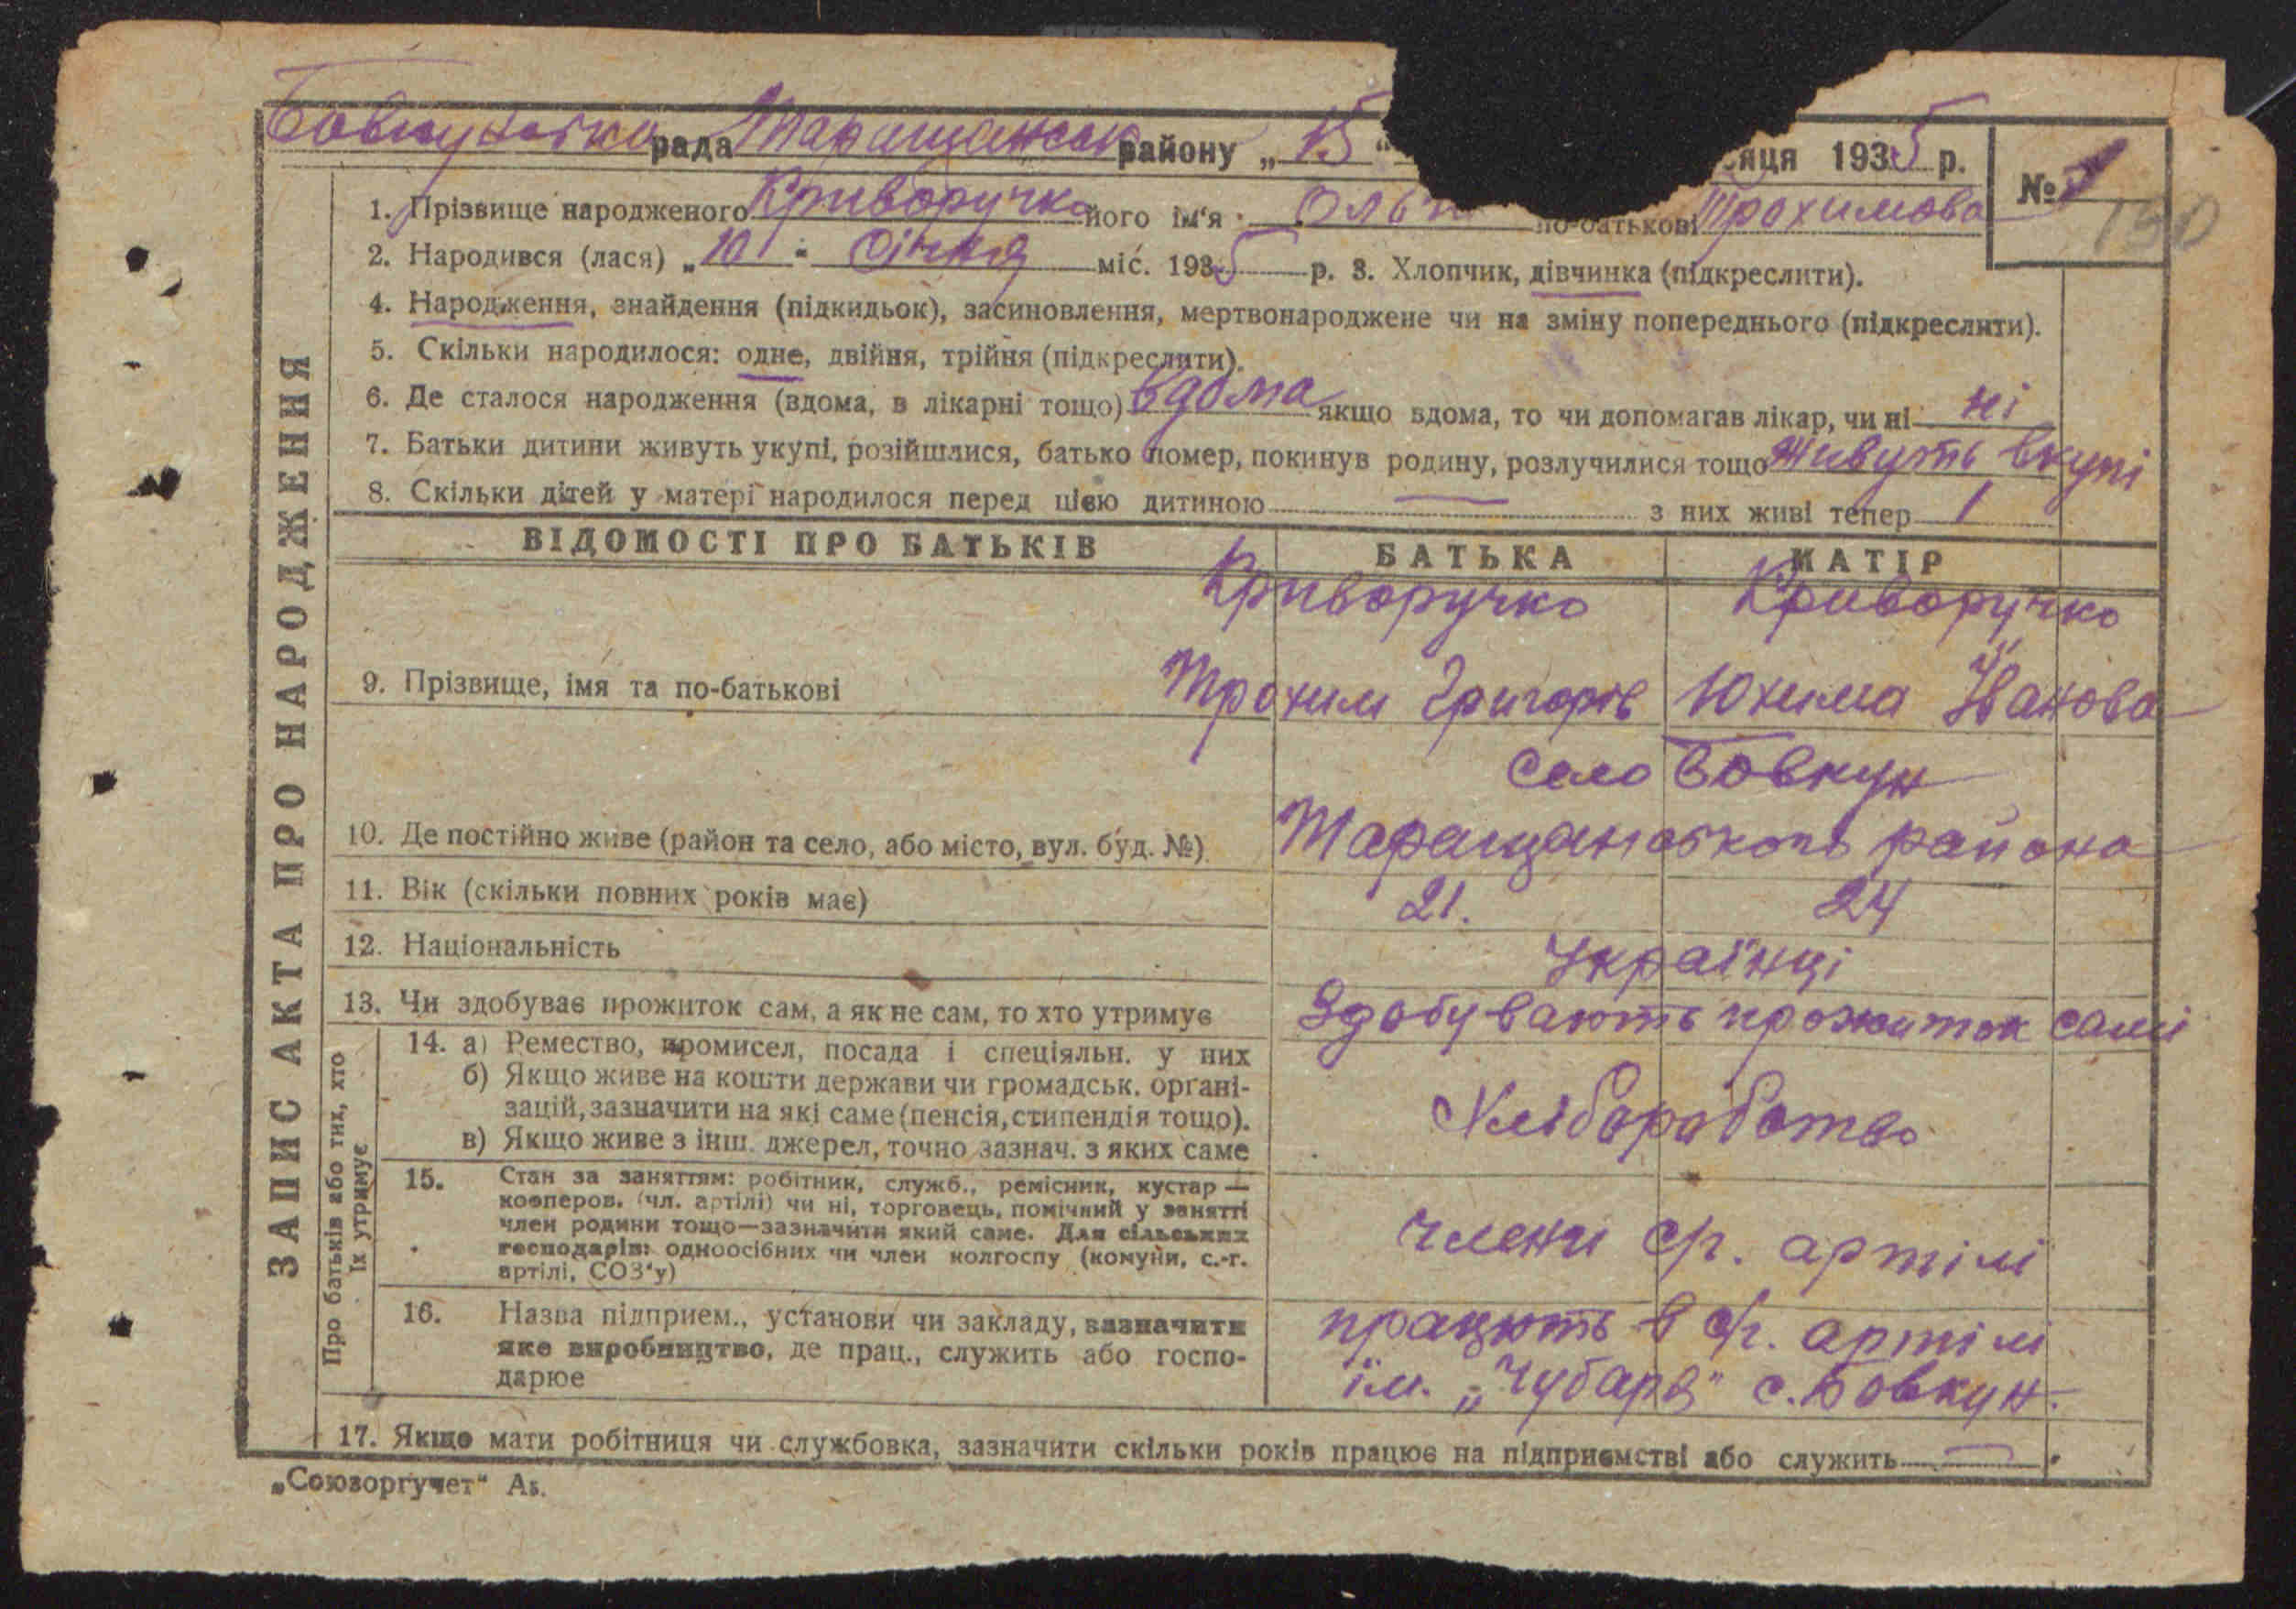 Бовкунська рада Таращанськ району „15“ сяця 1935 р.
№ 1
130
1. Прізвище народженого Криворучко його ім'я Ольг по-батькові Трохимова
2. Народився (лася) „10 " Січня міс. 1935 р. 3. Хлопчик, дівчинка (підкреслити).
4. Народження, знайдення (підкидьок), засиновлення, мертвонароджене чи на зміну попереднього (підкреслити).
5. Скільки народилося: одне, двійня, трійня (підкреслити).
6. Де сталося народження (вдома, в лікарні тощо) вдома якщо вдома, то чи допомагав лікар, чи ні ні
7. Батьки дитини живуть укупі, розійшлися, батько помер, покинув родину, розлучилися тощо живуть вкупі
8. Скільки дітей у матері народилося перед цією дитиною — з них живі тепер 1
ЗАПИС АКТА ПРО НАРОДЖЕННЯ
ВІДОМОСТІ ПРО БАТЬКІВ БАТЬКА МАТІР
Криворучко Криворучко
9. Прізвище, імя та по-батькові Трохим Григорів Юхима Іванова
село Бовкун
10. Де постійно живе (район та село, або місто, вул. буд. №) Таращанського района
11. Вік (скільки повних років має) 21. 24
12. Національність Українці
13. Чи здобуває прожиток сам, а як не сам, то хто утримує Здобувають прожиток самі
Про батьків або тих, хто
їх утримує
14. а) Ремество, промисел, посада і спеціяльн. у них
б) Якщо живе на кошти держави чи громадськ. органі-
зацій, зазначити на які саме (пенсія, стипендія тощо).
в) Якщо живе з інш. джерел, точно зазнач. з яких саме
Хліборобство
15. Стан за заняттям: робітник, служб., ремісник, кустар —
кооперов. (чл. артілі) чи ні, торговець, помічний у занятті
член родини тощо—зазначити який саме. Для сільських
господарів: одноосібних чи член колгоспу (комуни, с.-г.
артілі, СОЗ'у)
члени с/г. артілі
16. Назва підприєм., установи чи закладу, зазначити
яке виробництво, де прац., служить або госпо-
дарює
працють в с/г. артілі
ім. „Чубаря" с. Бовкун.
17. Якщо мати робітниця чи службовка, зазначити скільки років працює на підприємстві або служить —
„Союзоргучет“ А5.